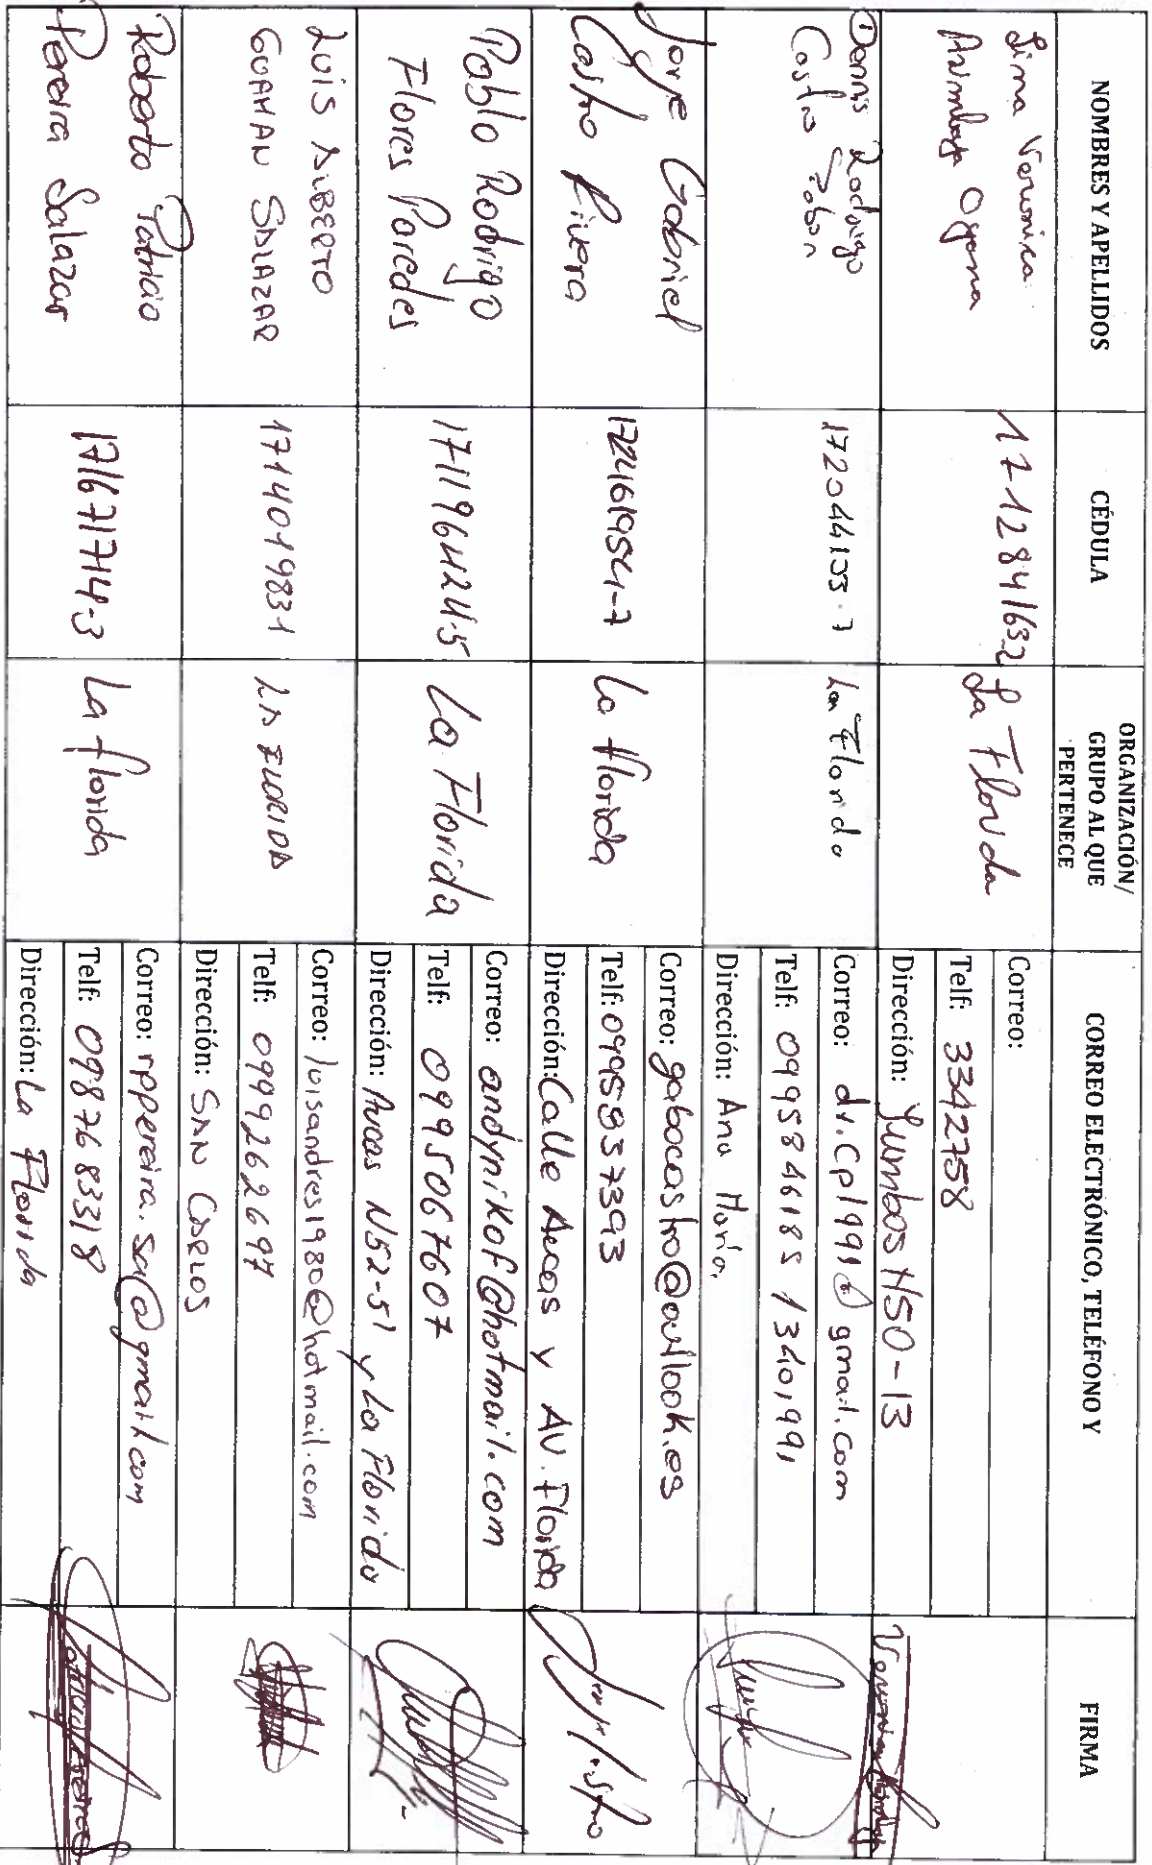 NOMBRES Y APELLIDOS
CÉDULA
ORGANIZACIÓN/
GRUPO AL QUE
PERTENECE
CORREO ELECTRÓNICO, TELÉFONO Y
FIRMA
Veronica
La Florida
Correo:
Telf: 3342758
Dirección: Yumbos N50-13
Dennis Rodrigo
Castro
La Florida
Correo: gmail.com
Telf: 0995846185 / 3401991
Dirección: Ana María.
Jorge Gabriel
Castro Rivera
La florida
Correo: gabocastro@outlook.es
Telf: 0995837393
Dirección: Calle Aucas y AV. Florida
Pablo Rodrigo
Flores Paredes
171196424-5
La Florida
Correo: andynikof@hotmail.com
Telf: 0995067607
Dirección: Aucas N52-51 y La Florida
LUIS ALBERTO
GUAMAN SALAZAR
1714019831
LA FLORIDA
Correo: luisandres1980@hotmail.com
Telf: 0999262697
Dirección: SAN CARLOS
Roberto Patricio
Pereira Salazar
171671714-3
La florida
Correo: rppereira.sa@gmail.com
Telf: 0987683318
Dirección: La Florida